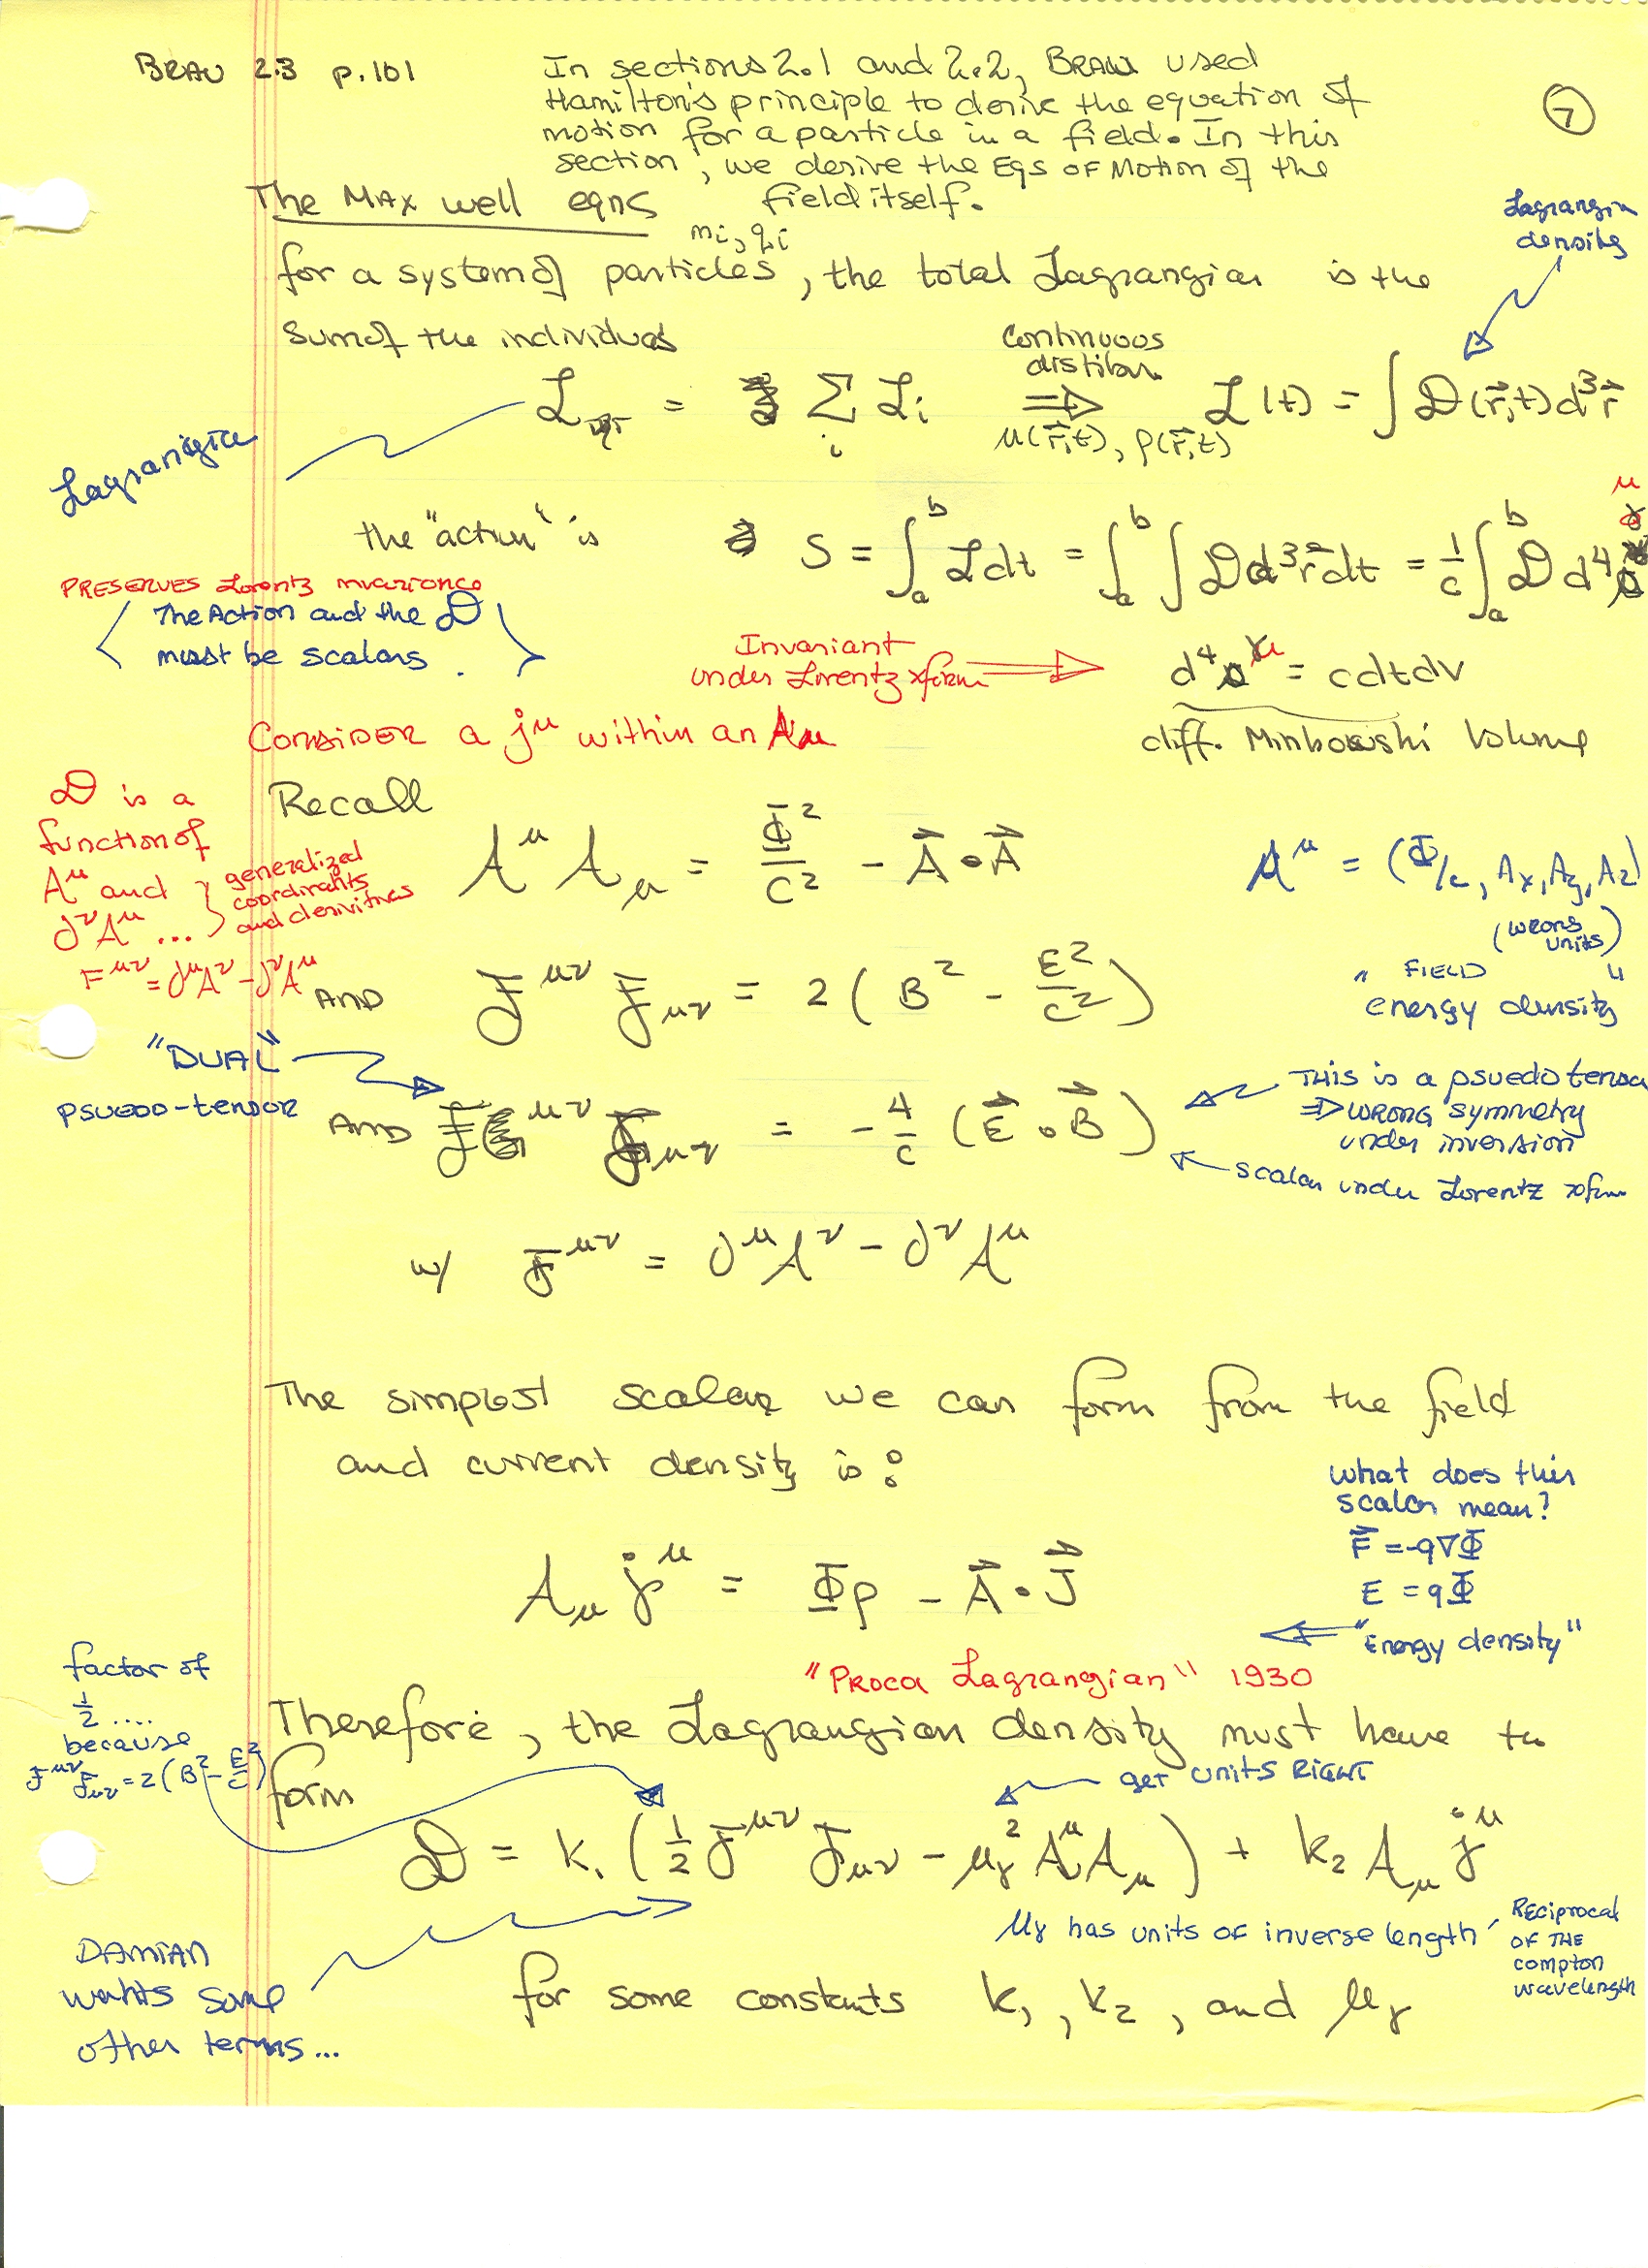 BRAU 2.3 p.101
In sections 2.1 and 2.2, BRAU used
Hamilton's principle to derive the equation of
motion for a particle in a field. In this
section, we derive the Eqs OF Motion of the
field itself.
7
The MAXwell eqns
Lagrangian
density
m_i, q_i
for a system of particles, the total Lagrangian is the
Sum of the individuals
continuous
ℒ = Σ_i ℒ_i ⟹ ℒ(t) = ∫ 𝒟(r⃗,t) d³r⃗
μ(r⃗,t), ρ(r⃗,t)
Lagrangian
the "action" is S = ∫_a^b ℒ dt = ∫_a^b ∫ 𝒟 d³r⃗ dt = 1/c ∫_a^b 𝒟 d⁴
PRESERVES Lorentz invariance
The Action and the 𝒟
must be scalars.
Invariant
under Lorentz xform
d⁴ = cdtdv
diff. Minkowski Volume
CONSIDER a j^μ within an A^μ
𝒟 is a
function of
A^μ and
∂^νA^μ ...
generalized
coordinants
and derivitives
F^μν = ∂^μA^ν - ∂^νA^μ
Recall
A^μ A_μ = Φ²/c² - A⃗ • A⃗
A^μ = (Φ/c, Ax, Ay, Az)
(wrong
units)
AND F^μν F_μν = 2(B² - E²/c²)
" FIELD "
energy density
"DUAL"
PSUEDO-tensor
AND ℱ^μν F_μν = -4/c (E⃗ • B⃗)
THIS is a psuedo tensor
⇒ WRONG symmetry
under inversion
scalar under Lorentz xform
w/ F^μν = ∂^μA^ν - ∂^νA^μ
The simplest scalar we can form from the field
and current density is:
What does this
scalar mean?
F⃗ = -q∇Φ
E = qΦ
"Energy density"
A_μ j^μ = Φρ - A⃗ • J⃗
"Proca Lagrangian" 1930
factor of
1/2 ....
because
F^μν F_μν = 2(B² - E²/c²)
Therefore, the Lagrangian density must have the
form
get units RIGHT
𝒟 = k₁(1/2 F^μν F_μν - μ_γ² A^μ A_μ) + k₂ A_μ j^μ
μ_γ has units of inverse length
RECiprocal
OF THE
compton
wavelength
DAMIAN
wants some
other terms...
for some constants k₁, k₂, and μ_γ